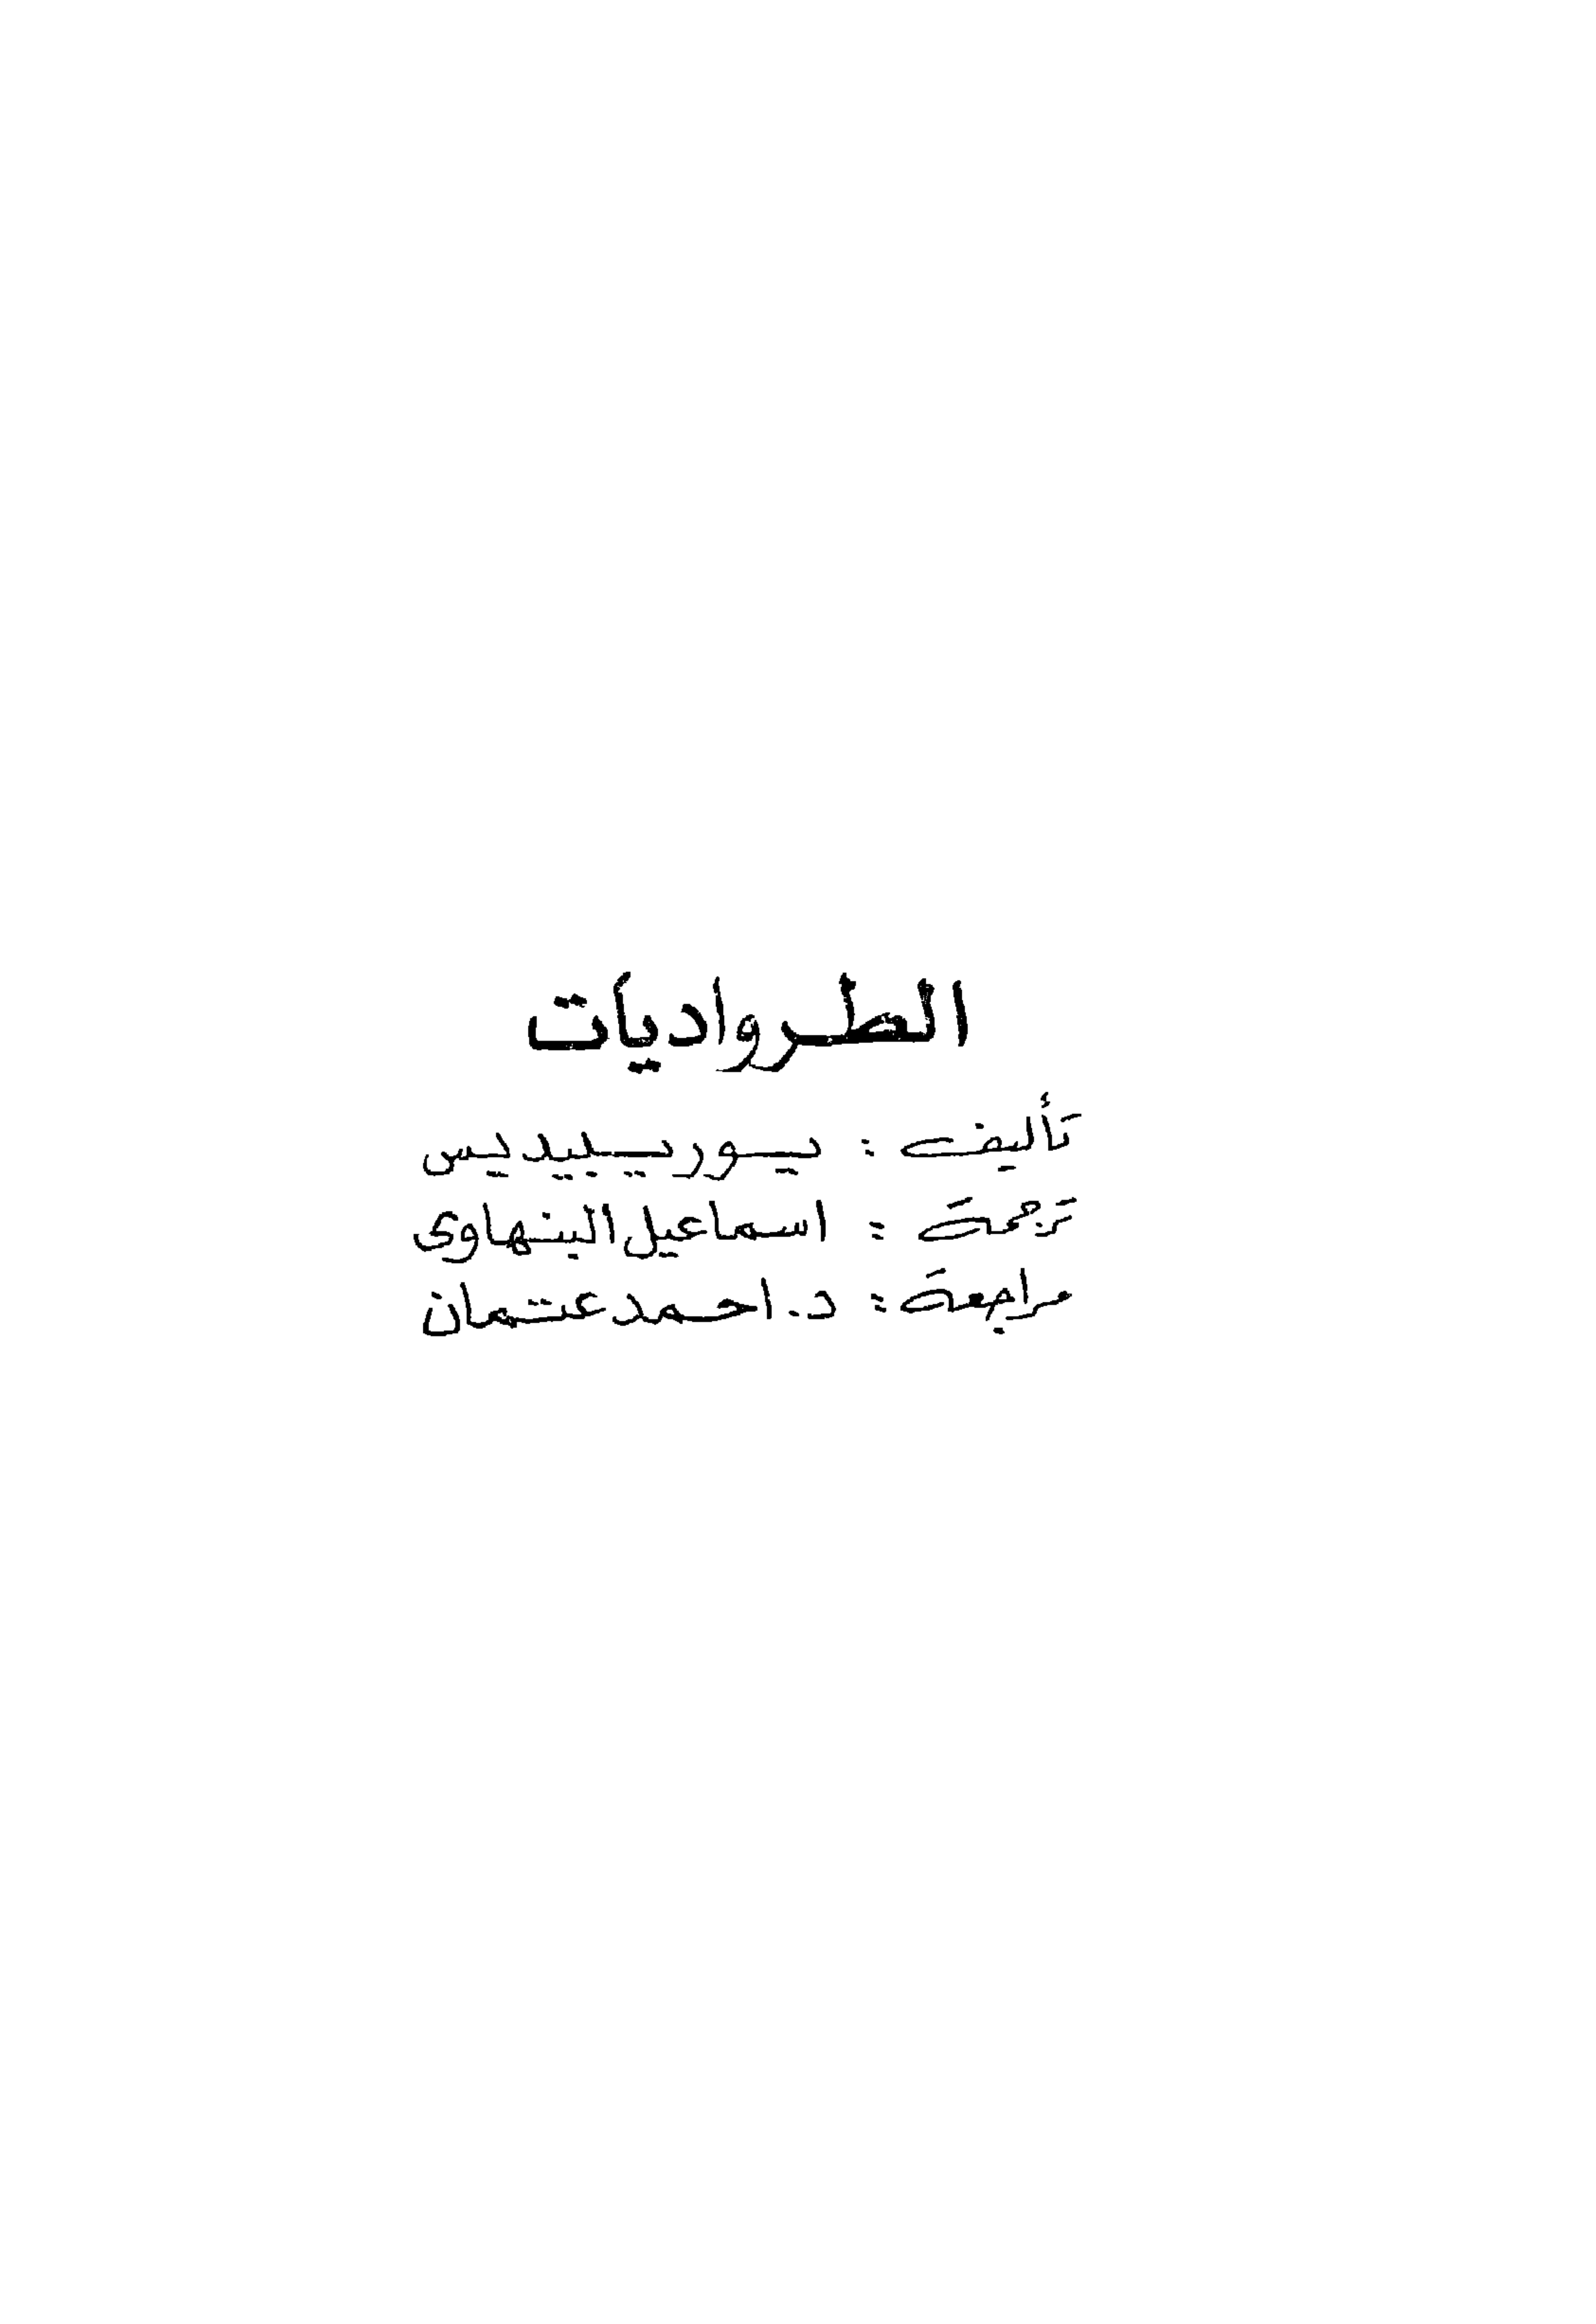 الطرواديات
تأليف : يوريبيديس
ترجمة : اسماعيل البنهاوى
مراجعة : د. احمد عتمان